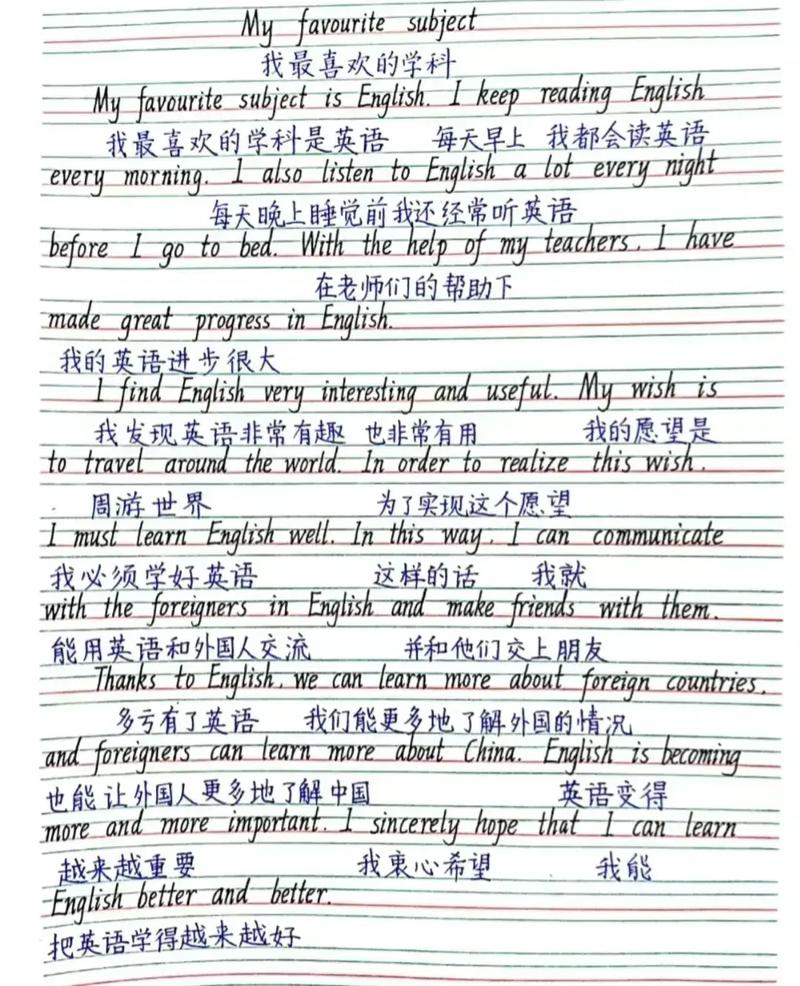 My favourite subject
我最喜欢的学科
My favourite subject is English. I keep reading English
我最喜欢的学科是英语 每天早上 我都会读英语
every morning. I also listen to English a lot every night
每天晚上睡觉前我还经常听英语
before I go to bed. With the help of my teachers, I have
在老师们的帮助下
made great progress in English.
我的英语进步很大
I find English very interesting and useful. My wish is
我发现英语非常有趣 也非常有用 我的愿望是
to travel around the world. In order to realize this wish,
周游世界 为了实现这个愿望
I must learn English well. In this way, I can communicate
我必须学好英语 这样的话 我就
with the foreigners in English and make friends with them.
能用英语和外国人交流 并和他们交上朋友
Thanks to English, we can learn more about foreign countries,
多亏有了英语 我们能更多地了解外国的情况
and foreigners can learn more about China. English is becoming
也能让外国人更多地了解中国 英语变得
more and more important. I sincerely hope that I can learn
越来越重要 我衷心希望 我能
English better and better.
把英语学得越来越好